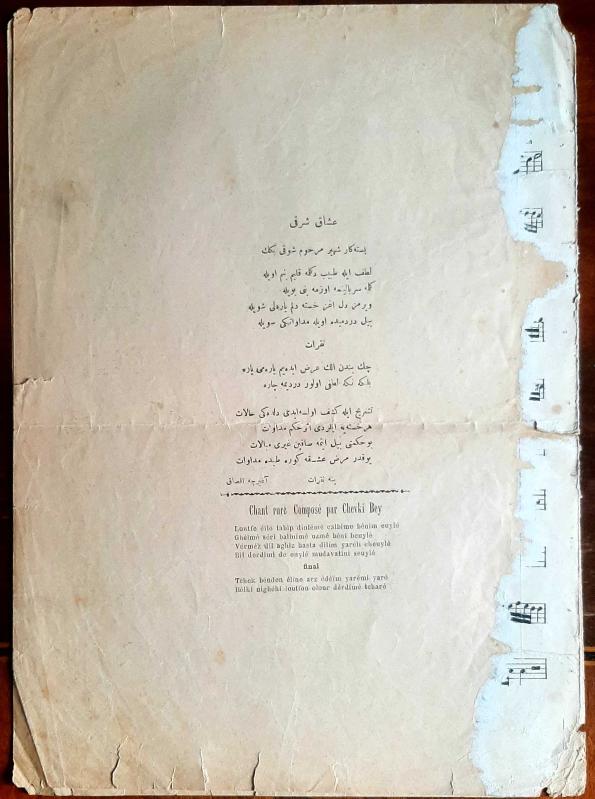 عشاق شرقی
بسته‌كار شهير مرحوم شوقی بكك
لطف ايله طبيب دكله قلبم بنم اويله
كلمه سر بالينمه اوزمه بنی بويله
ويرمز دل اغز خسته دلم ياره‌لی شويله
بيل دردمیده اويله مداواتكی سويله
نقرات
چك بندن الك عرض ايده‌يم ياره‌می ياره
بلكه نكه لطفی اولور دردیمه چاره
تشريح ايله كشف اولمه‌ايدی دلده‌كی حالات
هر خسته‌يه ايلردی اثر حكم مداوات
بو حكمتی بيل ايتمه صاقين غيری مبالات
يوقدر مرض عشقه كوره طبده مداوات
ينه نقرات
Chant rare Composé par Chevki Bey
Loutfe éile tabip dinlémé calbime bénim euylé
Ghelmé séri balinimé uzmé béni beuylé
Vérméz dil aghiz hasta dilim yaréli cheuylé
Bil derdimi de euylé mudavatini seuylé
final
Tchek bénden éline arz édéim yarémi yaré
Bélki nighéhi loutfou olour dérdimé tcharé